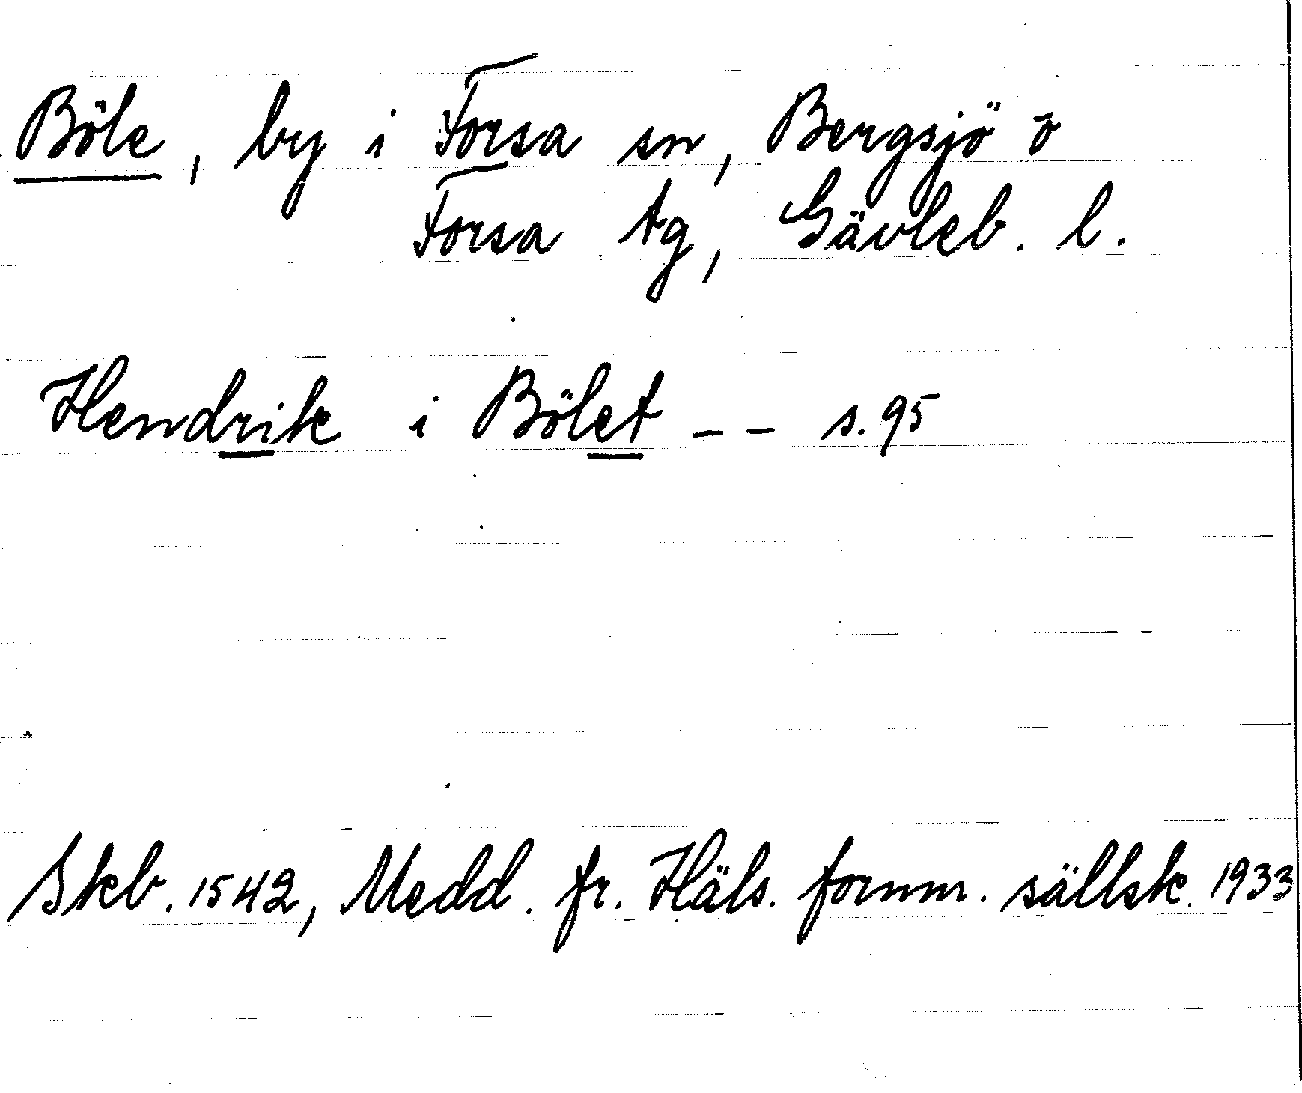 Böle, by i Forsa sn, Bergsjö o
Forsa tg, Gävleb. l.
Hendrik i Bölet -- s. 95
Skb. 1542, Medd. fr. Häls. fornm. sällsk. 1933